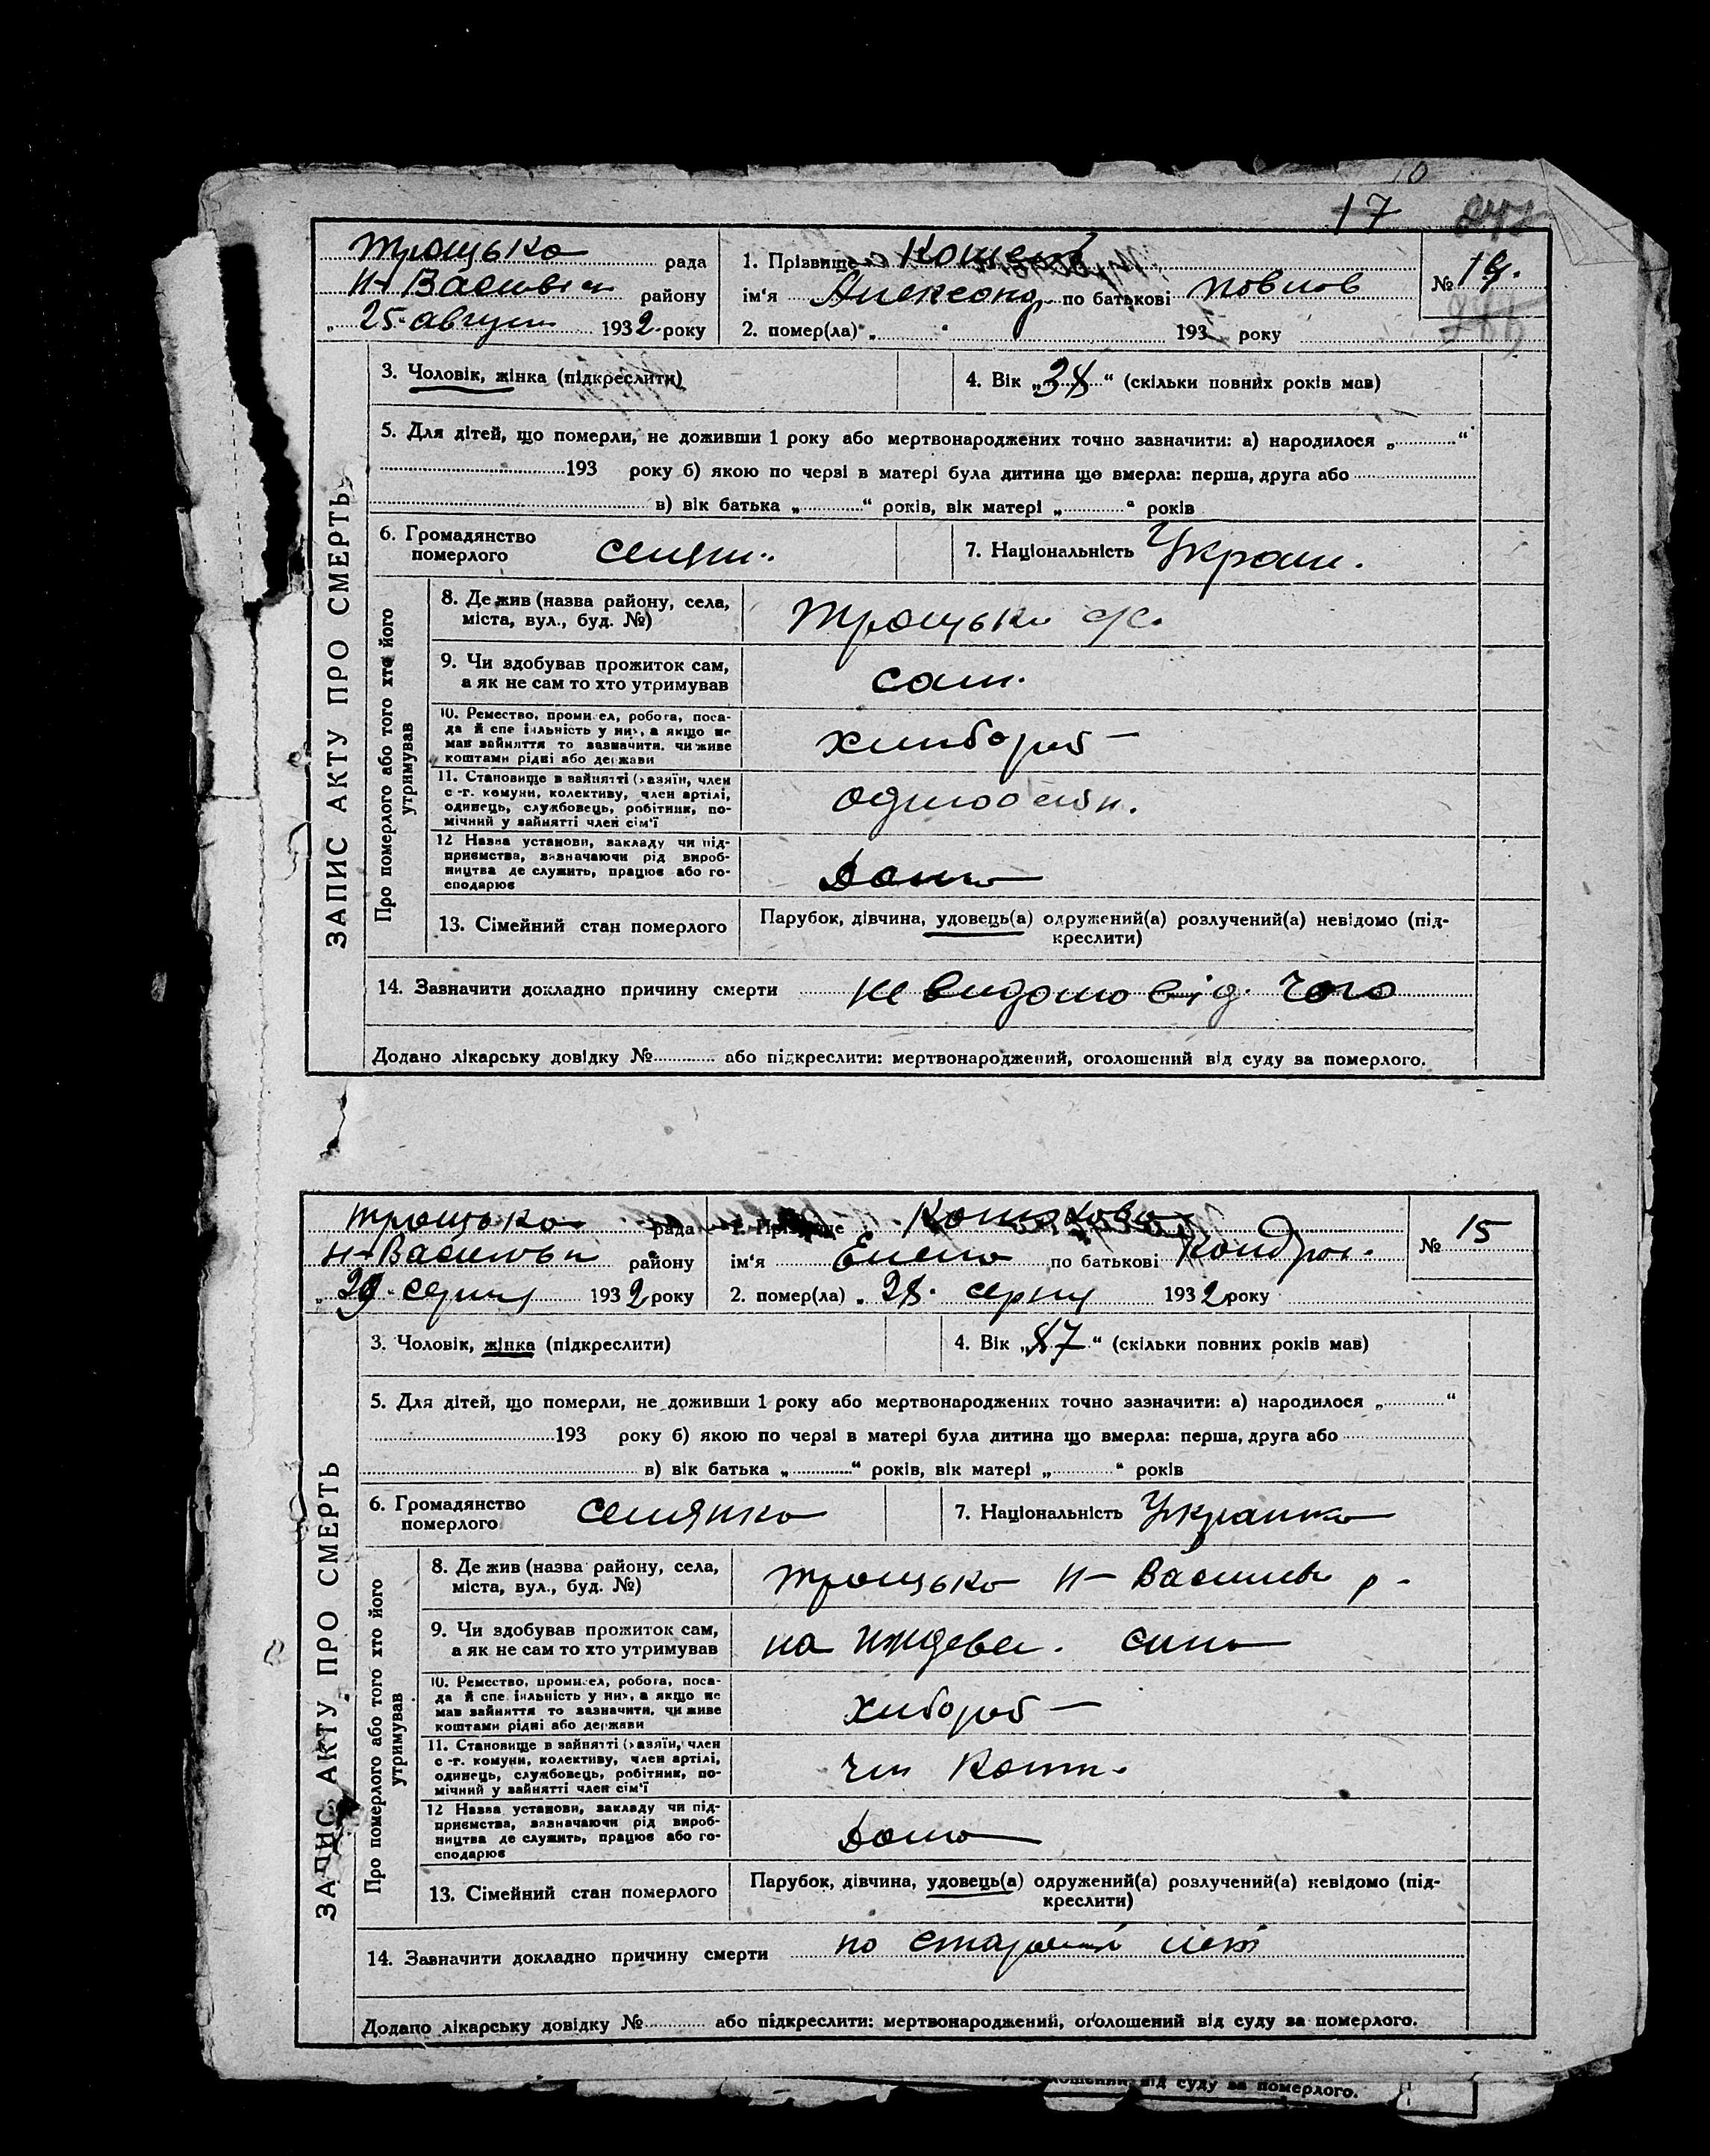 10
17
Троцька рада
Н-Васильев району
„ 25 август 1932 року
1. Прізвище Кошел
ім'я Александр по батькові Павлов
2. помер(ла) „ “ 193 року
№ 14.
3. Чоловік, жінка (підкреслити)
4. Вік „38“ (скільки повних років мав)
5. Для дітей, що померли, не доживши 1 року або мертвонароджених точно зазначити: а) народилося „ “
193 року б) якою по черзі в матері була дитина що вмерла: перша, друга або
в) вік батька „ “ років, вік матері „ “ років
6. Громадянство
померлого селян.
7. Національність Украин.
ЗАПИС АКТУ ПРО СМЕРТЬ
Про померлого або того хто його
утримував
8. Де жив (назва району, села,
міста, вул., буд. №)
Троцьке
9. Чи здобував прожиток сам,
а як не сам то хто утримував
сам.
10. Ремество, промисел, робота, поса-
да й спеціяльність у них, а якщо не
мав зайняття то зазначити, чи живе
коштами рідні або держави
хлибороб
11. Становище в зайнятті (хазяїн, член
с.-г. комуни, колективу, член артілі,
одинець, службовець, робітник, по-
мічний у зайнятті член сім'ї
12 Назва установи, закладу чи під-
приємства, зазначаючи рід вироб-
ництва де служить, працює або го-
сподарює
Дома
13. Сімейний стан померлого
Парубок, дівчина, удовець(а) одружений(а) розлучений(а) невідомо (під-
креслити)
14. Зазначити докладно причину смерти не видомо від чого
Додано лікарську довідку № або підкреслити: мертвонароджений, оголошений від суду за померлого.
Троцька рада
Н-Васильев району
„ 29 “ серпня 1932 року
1. Прізвище
ім'я Елена по батькові Кондрат.
2. помер(ла) „ 28 серпня 1932 року
№ 15
3. Чоловік, жінка (підкреслити)
4. Вік „87“ (скільки повних років мав)
5. Для дітей, що померли, не доживши 1 року або мертвонароджених точно зазначити: а) народилося „ “
193 року б) якою по черзі в матері була дитина що вмерла: перша, друга або
в) вік батька „ “ років, вік матері „ “ років
6. Громадянство
померлого селянка
7. Національність Украинка
ЗАПИС АКТУ ПРО СМЕРТЬ
Про померлого або того хто його
утримував
8. Де жив (назва району, села,
міста, вул., буд. №)
Троцька Н-Василев р-
9. Чи здобував прожиток сам,
а як не сам то хто утримував
на иждеве. сина
10. Ремество, промисел, робота, поса-
да й спеціяльність у них, а якщо не
мав зайняття то зазначити, чи живе
коштами рідні або держави
хлибороб
11. Становище в зайнятті (хазяїн, член
с.-г. комуни, колективу, член артілі,
одинець, службовець, робітник, по-
мічний у зайнятті член сім'ї
12 Назва установи, закладу чи під-
приємства, зазначаючи рід вироб-
ництва де служить, працює або го-
сподарює
Дома
13. Сімейний стан померлого
Парубок, дівчина, удовець(а) одружений(а) розлучений(а) невідомо (під-
креслити)
14. Зазначити докладно причину смерти по старости лет
Додано лікарську довідку № або підкреслити: мертвонароджений, оголошений від суду за померлого.
від суду за померлого.